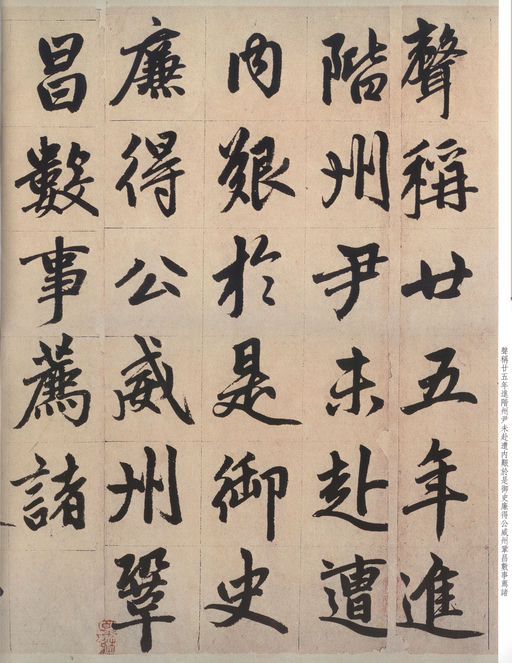 聲稱廿五年進
階州尹未赴遭
內艱於是御史
廉得公威州鞏
昌數事薦諸
聲稱廿五年進階州尹未赴遭內艱於是御史廉得公威州鞏昌數事薦諸